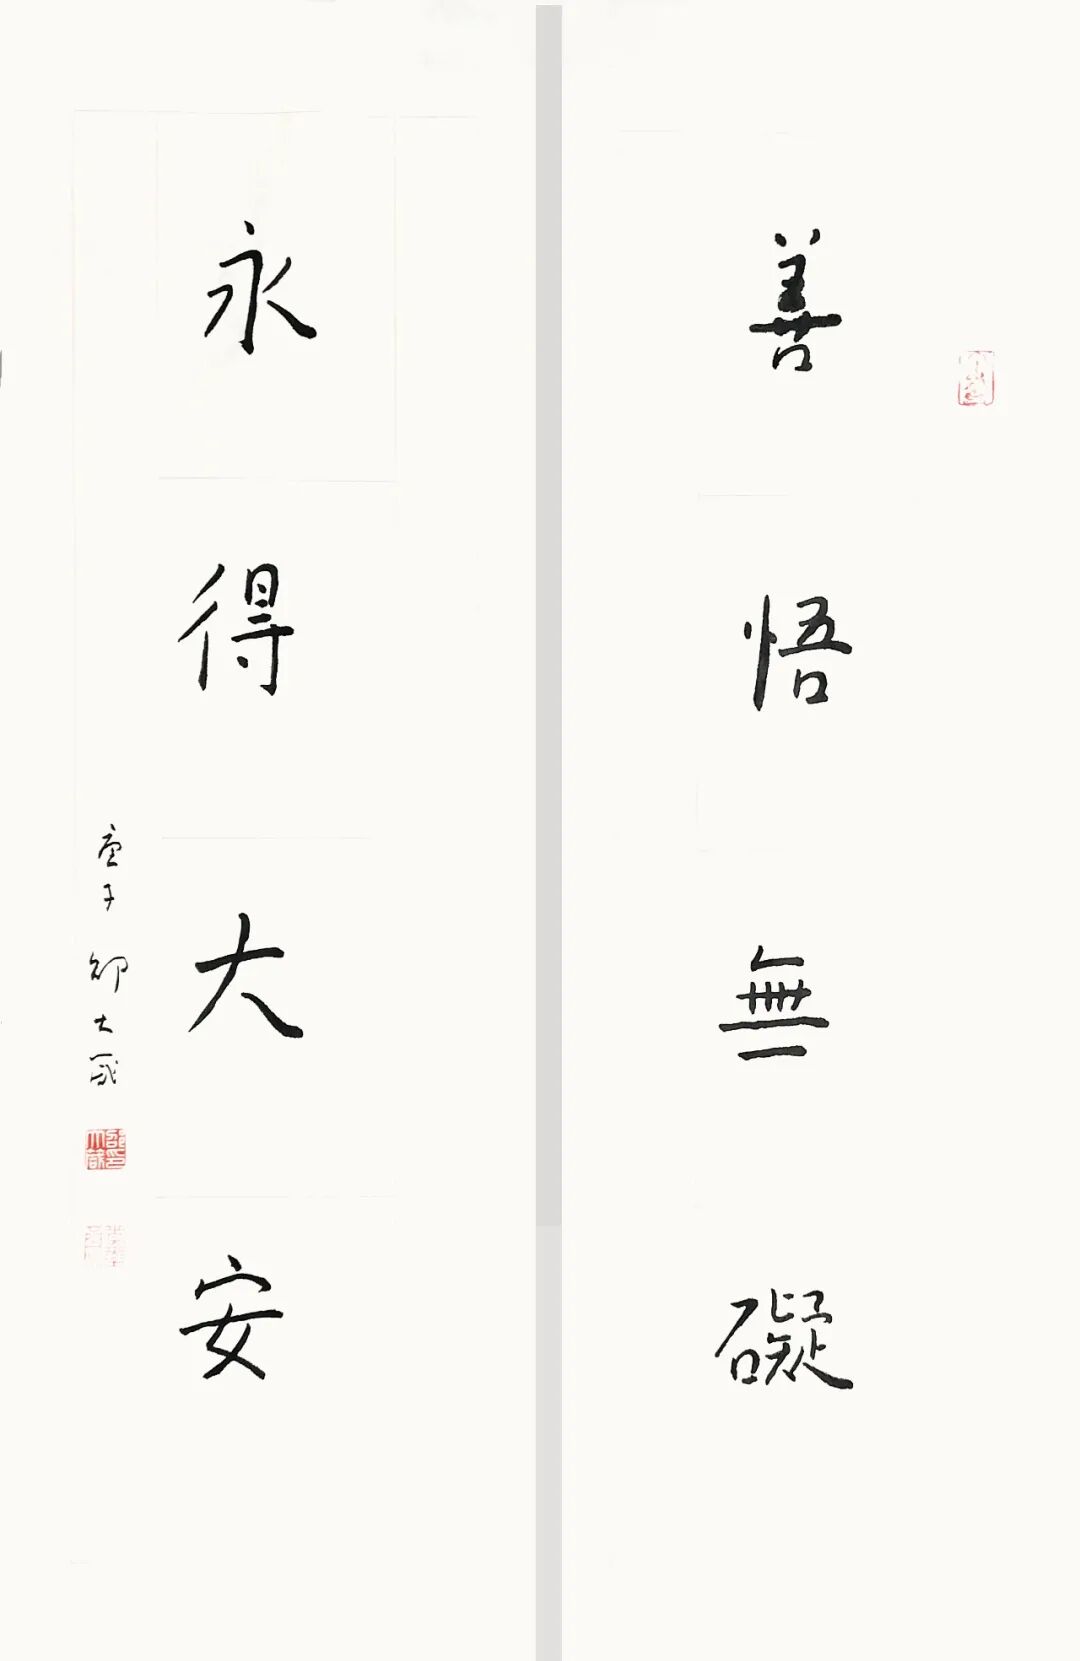 善悟無礙
永得大安
庚子邵大箴